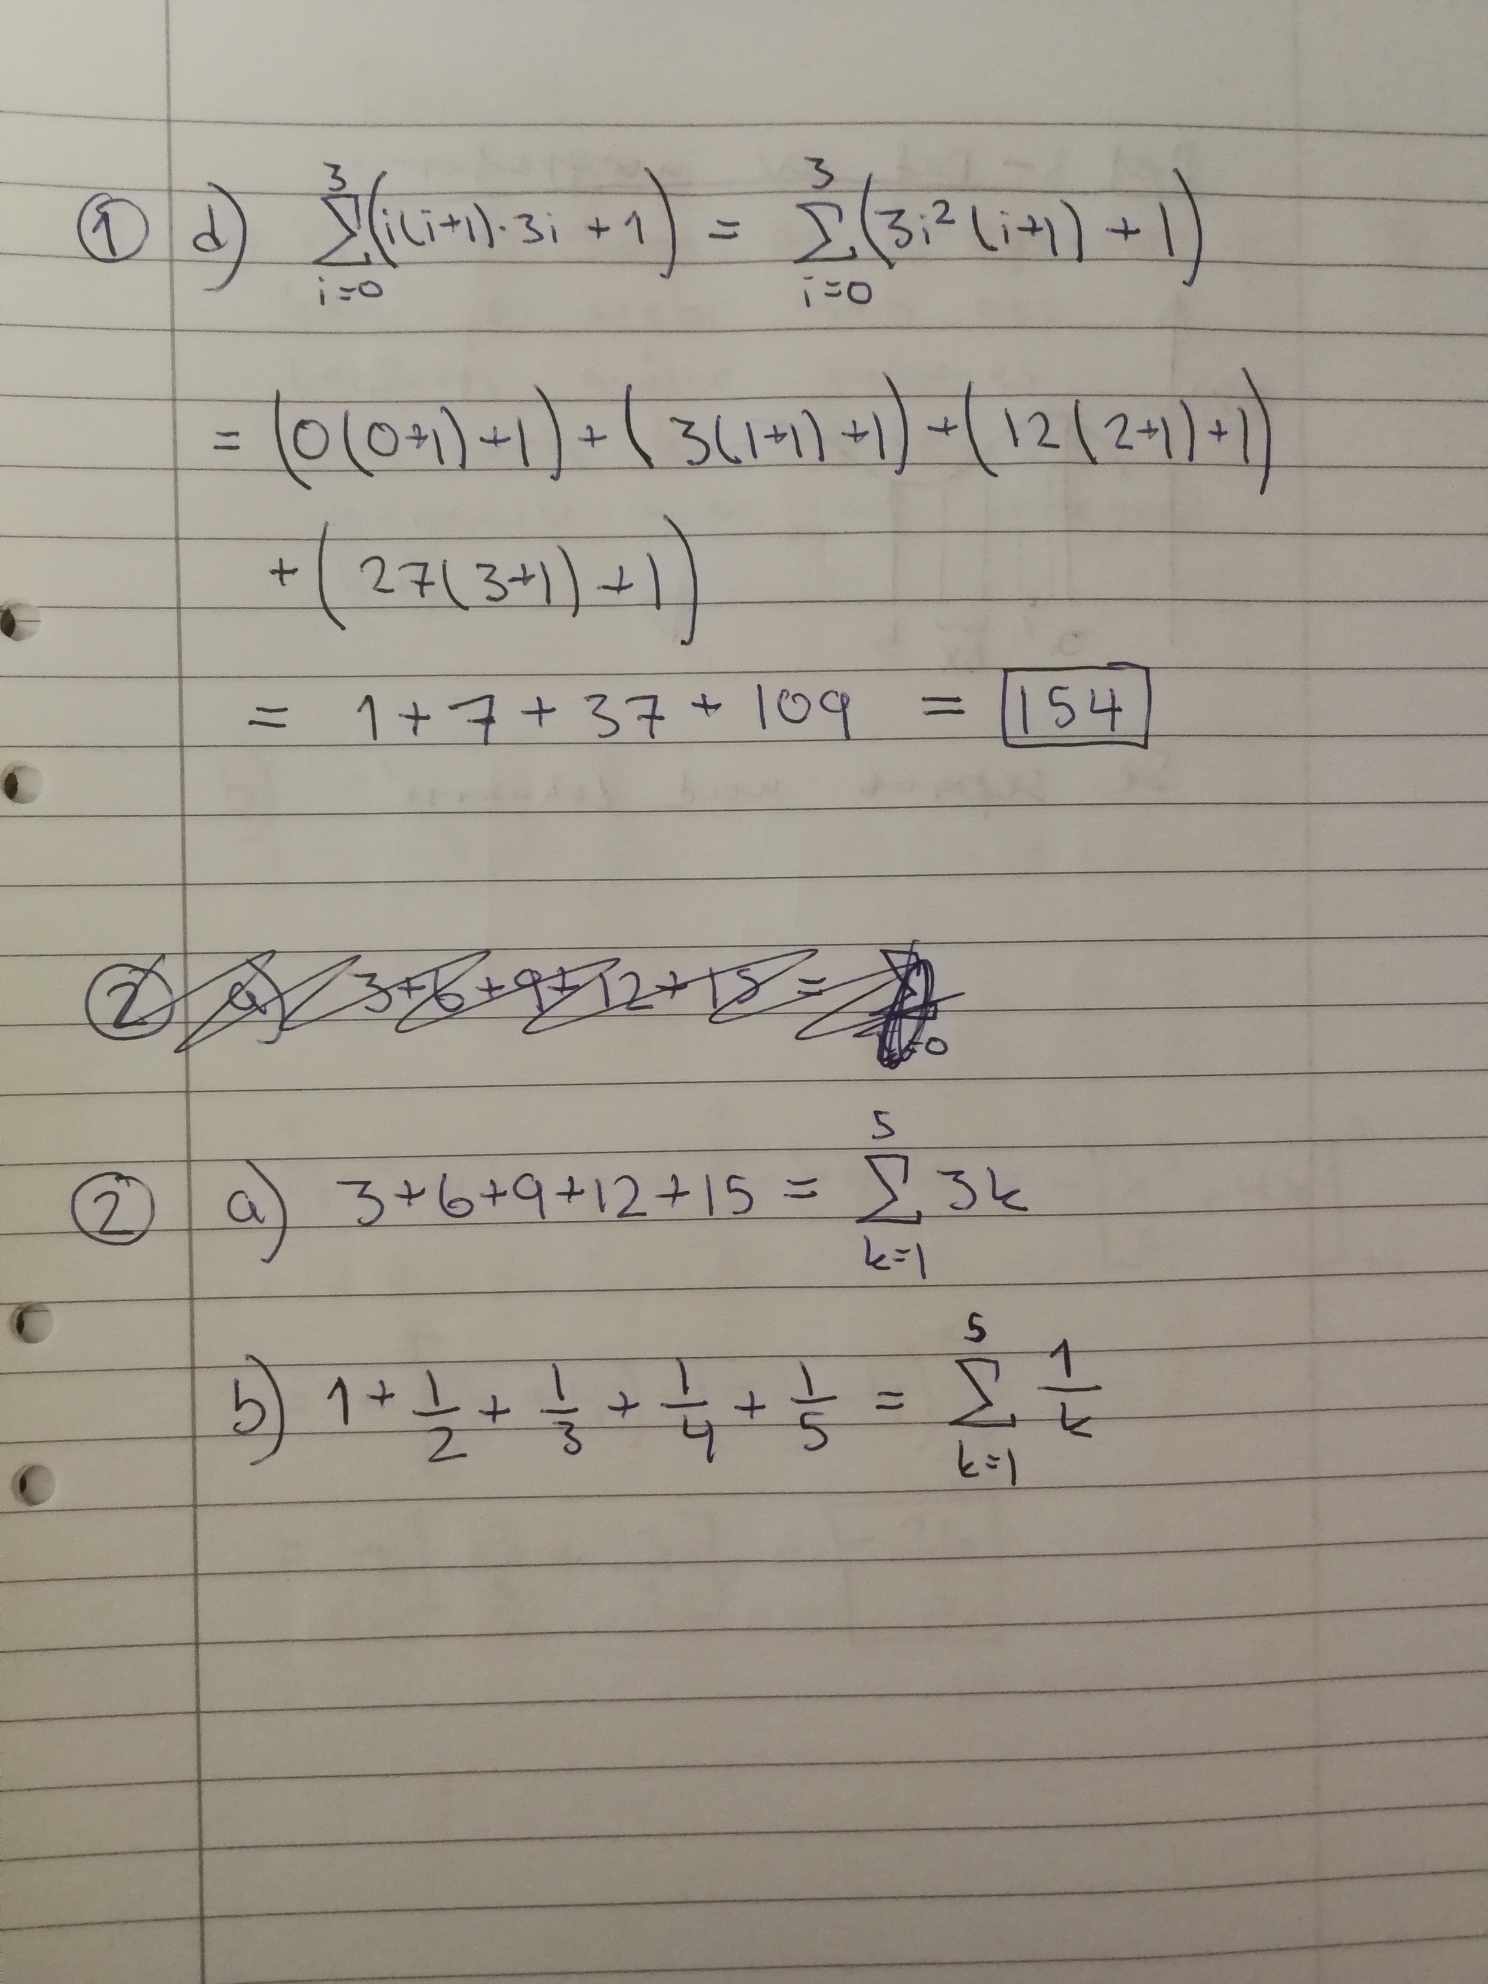 ① d) ∑_{i=0}^{3} (i(i+1)·3i + 1) = ∑_{i=0}^{3} (3i²(i+1) + 1)
= (0(0+1)+1) + (3(1+1)+1) + (12(2+1)+1)
+ (27(3+1)+1)
= 1+7+37+109 = 154
② a) 3+6+9+12+15 =
② a) 3+6+9+12+15 = ∑_{k=1}^{5} 3k
b) 1 + 1/2 + 1/3 + 1/4 + 1/5 = ∑_{k=1}^{5} 1/k